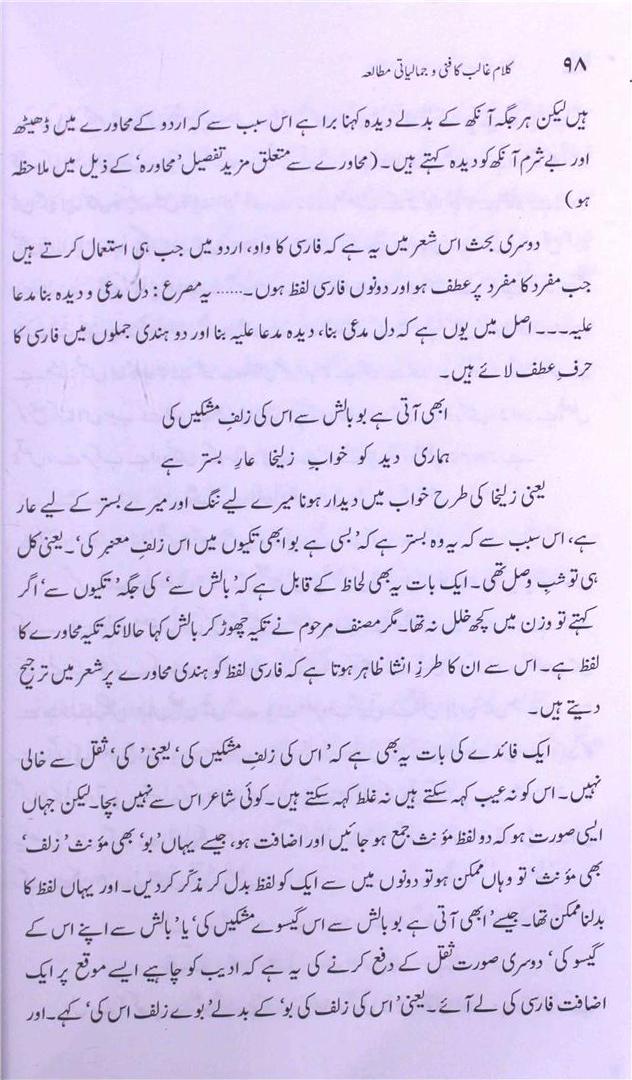 ۹۸ کلام غالب کا فنی و جمالیاتی مطالعہ
ہیں لیکن ہر جگہ آنکھ کے بدلے دیدہ کہنا برا ہے اس سبب سے کہ اردو کے محاورے میں ڈھیٹھ
اور بے شرم آنکھ کو دیدہ کہتے ہیں۔ (محاورے سے متعلق مزید تفصیل ’محاورہ‘ کے ذیل میں ملاحظہ
ہو)
دوسری بحث اس شعر میں یہ ہے کہ فارسی کا واو، اردو میں جب ہی استعمال کرتے ہیں
جب مفرد کا مفرد پر عطف ہو اور دونوں فارسی لفظ ہوں۔...... یہ مصرع: دل مدعی و دیدہ بنا مدعا
علیہ۔۔۔ اصل میں یوں ہے کہ دل مدعی بنا، دیدہ مدعا علیہ بنا اور دو ہندی جملوں میں فارسی کا
حرفِ عطف لائے ہیں۔
ابھی آتی ہے بو بالش سے اس کی زلفِ مشکیں کی
ہماری دید کو خوابِ زلیخا عارِ بستر ہے
یعنی زلیخا کی طرح خواب میں دیدار ہونا میرے لیے ننگ اور میرے بستر کے لیے عار
ہے، اس سبب سے کہ یہ وہ بستر ہے کہ ’بسی ہے بو ابھی تکیوں میں اس زلفِ معنبر کی‘۔ یعنی کل
ہی تو شبِ وصل تھی۔ ایک بات یہ بھی لحاظ کے قابل ہے کہ ’بالش سے‘ کی جگہ ’تکیوں سے‘ اگر
کہتے تو وزن میں کچھ خلل نہ تھا۔ مگر مصنف مرحوم نے تکیہ چھوڑ کر بالش کہا حالانکہ تکیہ محاورے کا
لفظ ہے۔ اس سے ان کا طرزِ انشا ظاہر ہوتا ہے کہ فارسی لفظ کو ہندی محاورے پر شعر میں ترجیح
دیتے ہیں۔
ایک فائدے کی بات یہ بھی ہے کہ ’اس کی زلفِ مشکیں کی‘ یعنی ’کی‘ ثقل سے خالی
نہیں۔ اس کو نہ عیب کہہ سکتے ہیں نہ غلط کہہ سکتے ہیں۔ کوئی شاعر اس سے نہیں بچا۔ لیکن جہاں
ایسی صورت ہو کہ دو لفظ مؤنث جمع ہو جائیں اور اضافت ہو، جیسے یہاں ’بو‘ بھی مؤنث ’زلف‘
بھی مؤنث‘ تو وہاں ممکن ہو تو دونوں میں سے ایک کو لفظ بدل کر مذکّر کر دیں۔ اور یہاں لفظ کا
بدلنا ممکن تھا۔ جیسے ’ابھی آتی ہے بو بالش سے اس گیسوے مشکیں کی‘ یا ’بالش سے اپنے اس کے
گیسو کی‘ دوسری صورت ثقل کے دفع کرنے کی یہ ہے کہ ادیب کو چاہیے ایسے موقع پر ایک
اضافت فارسی کی لے آئے۔ یعنی ’اس کی زلف کی بو‘ کے بدلے ’بوے زلف اس کی‘ کہے۔ اور